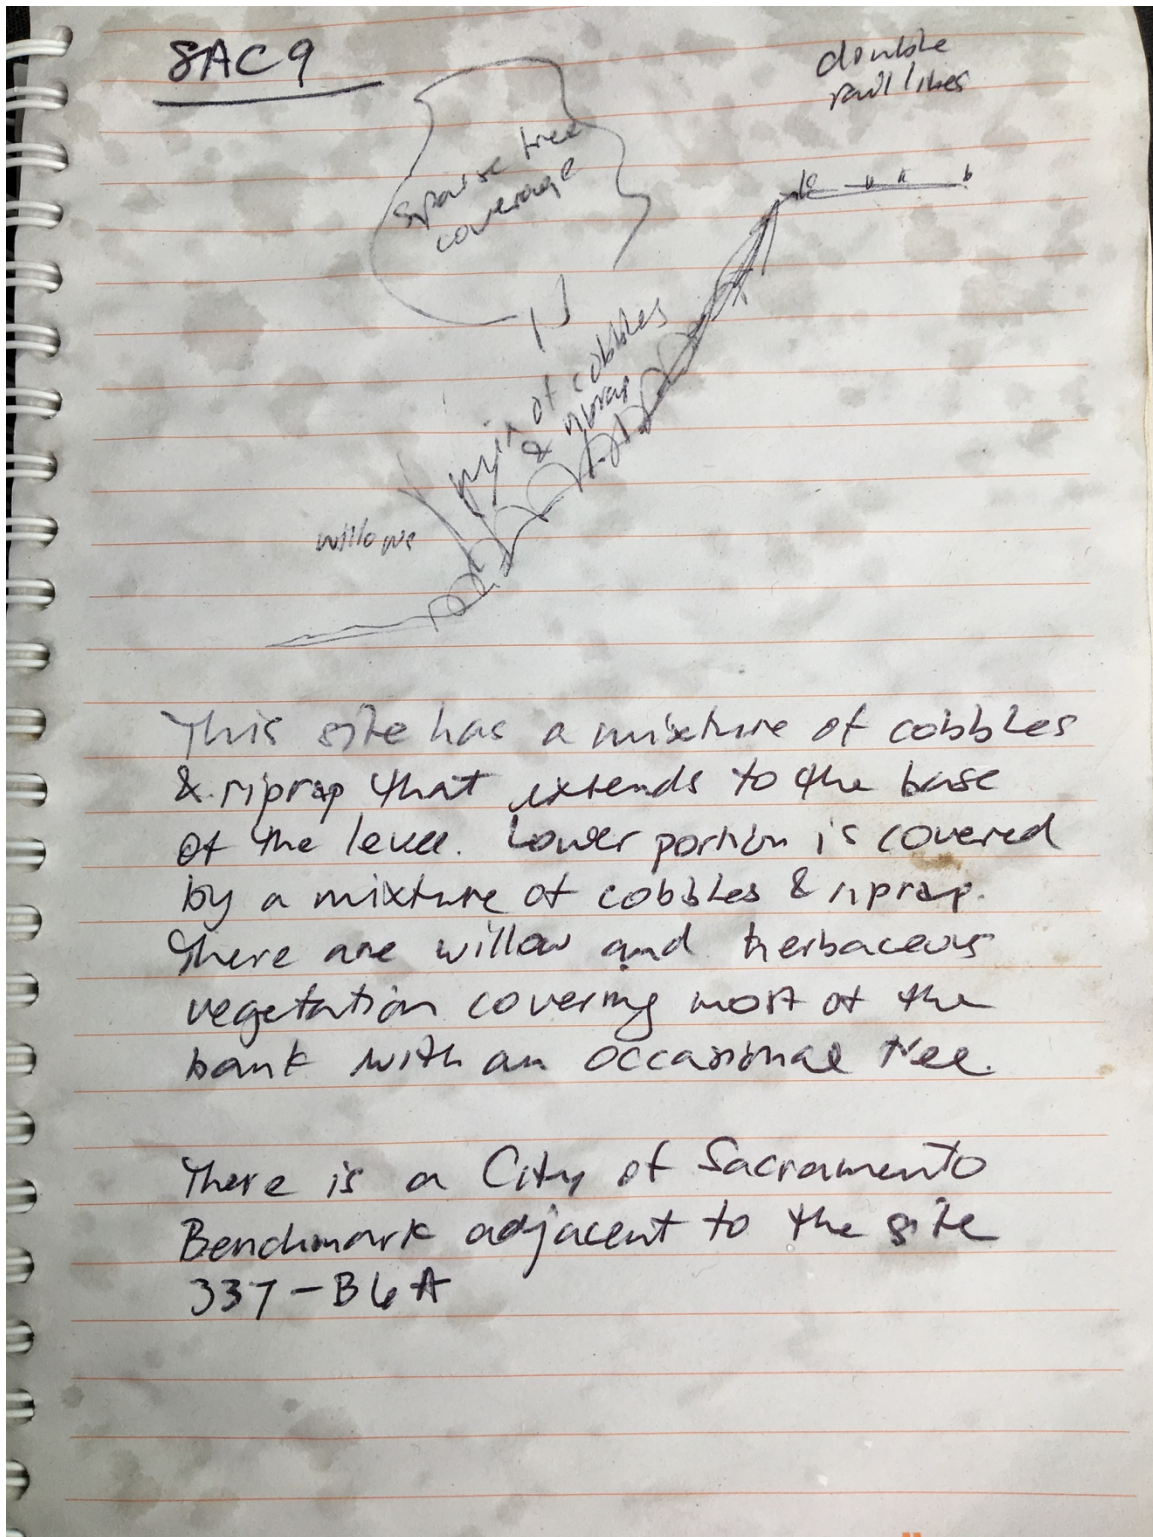 SAC9
double
rail lines
sparse tree
coverage
mix of cobbles
& riprap
willows
This site has a mixture of cobbles
& riprap that extends to the base
of the levee. Lower portion is covered
by a mixture of cobbles & riprap.
There are willow and herbaceous
vegetation covering most of the
bank with an occasional tree.
There is a City of Sacramento
Benchmark adjacent to the site
337-B6A